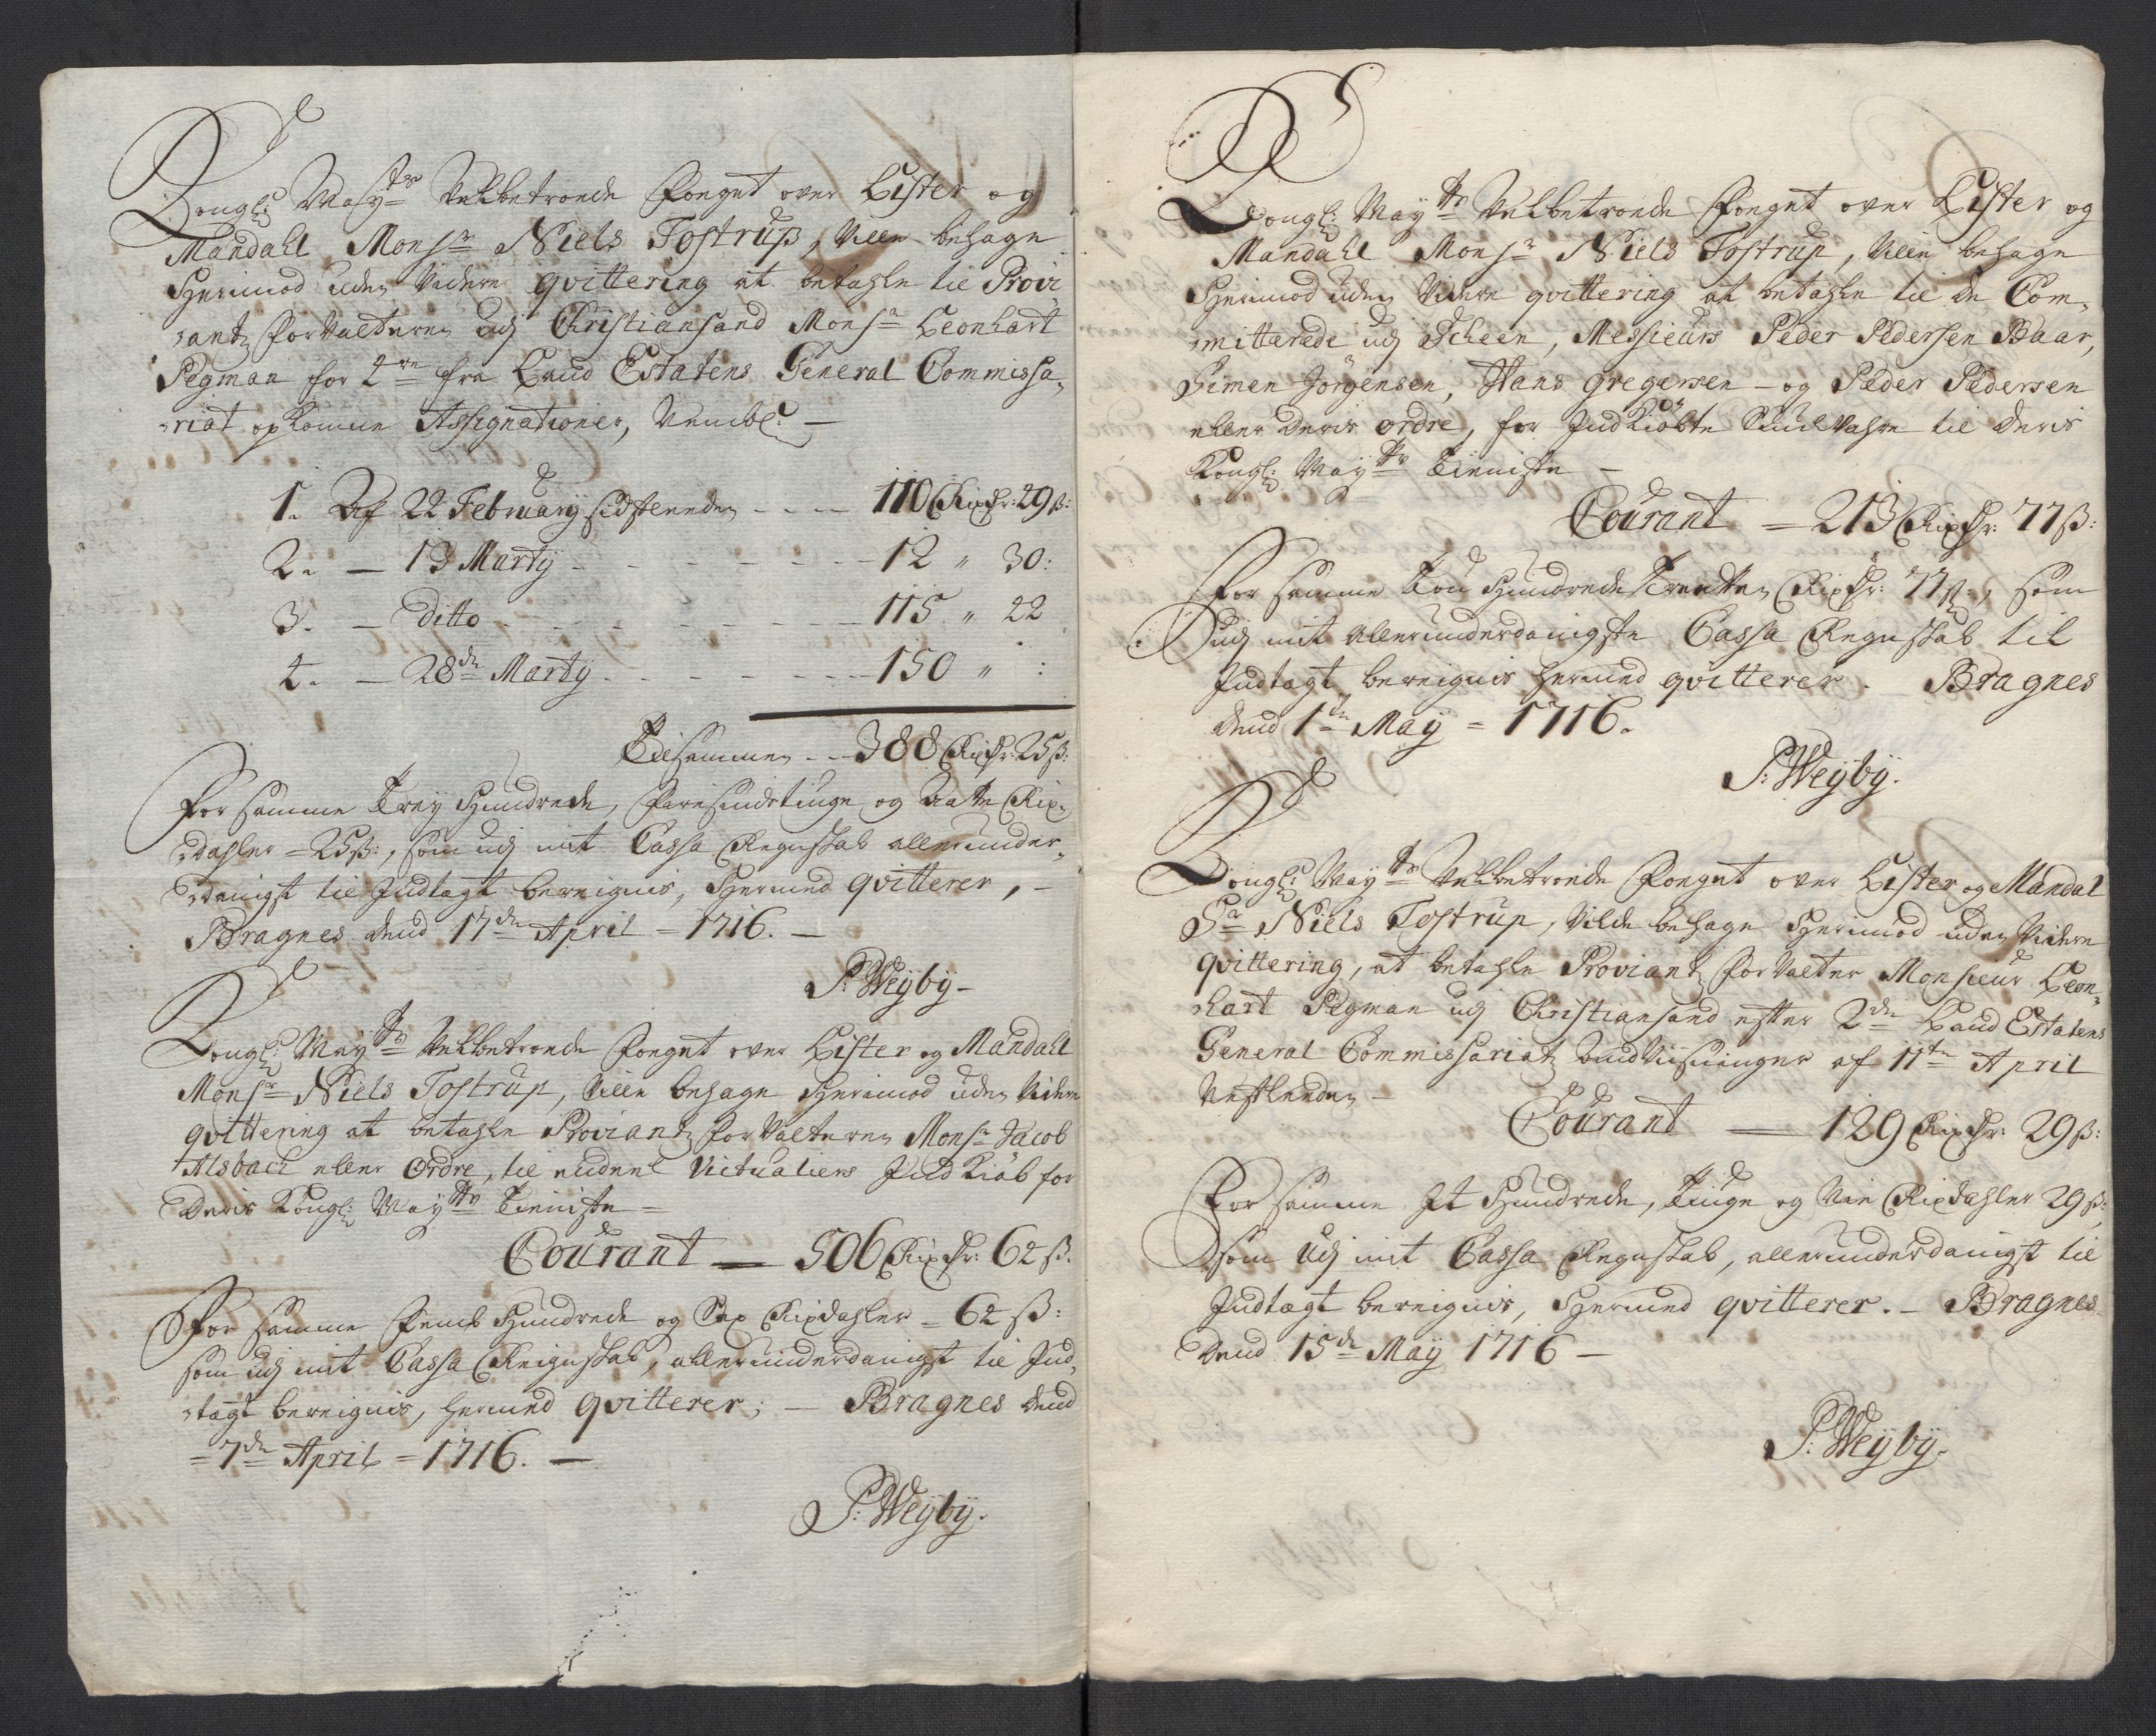 Kongl: May:ts Velbetroede Foeget over Lister og
Mandahl Monsr Niels Tostrup, Ville behage
Herimod uden Videre qvittering at betahle til Provi
antz forvalteren udj Christiansand Monsr Leonhart
Pegman for 4re fra Land Estatens General Commissa,
riat opkomne Assignationer, Nembl: —
1. Af 22 February sidstleeden - - - 110 Rixdr: 29 ß:
2. — 13 Marty - - - - - - - 12 " 30:
3. — Ditto - - - - - - - 115. " 22
4. — 28de Marty - - - - - - - 150 " :
Tilsammen - - 388 Rixdr: 25 ß:
For samme Trey Hundrede, Firesindstiuge og Aatte Rix-
dahler = 25 ß:, som udj mit Cassa Regnskab allerunder,
danigst til Indtægt bereignis, Hermed qvitterer, —
Bragnes dend 17de April = 1716. —
P: Weyby —
Kongl: May:ts Velbetroede Foeget over Lister og Mandahl
Monsr Niels Tostrup, Ville behage Herimod uden Videre
qvittering at betahle Proviantz forvalteren Monsr Jacob
Alsbach eller Ordre, til endeel Victualiers Indkiøb for
Deris Kongl: May:ts Tieniste =
Courant — 506 Rixdr: 62 ß.
For samme Femb Hundrede og Sex Rixdahler = 62 ß:
som udj mit Cassa Reignskab, allerunderdanigst til Ind,
tægt bereignis, hermed qvitterer; — Bragnes dend
= 7de April = 1716. —
P: Weyby.
Kongl: May:ts Velbetroede Foeget over Lister og
Mandahl Monsr Niels Tostrup, Ville behage
Herimod uden Videre qvittering at betahle til de Com,
mitterede udj Scheen, Messieurs Peder Pedersen Baar,
Simen Jörgensen, Hans Gregersen - og Peder Pedersen
eller deris ordre, for Indkiøbte Vahre til deris
Kongl: May:ts Tieniste —
Courant = 213 Rixdr: 77 ß:
For samme Tou Hundrede Tretten Rixdr: 77 ß:, som
udj mit allerunderdanigste Cassa Regnskab til
Indtægt bereignis hermed qvitterer. Bragnes
dend 1te May = 1716.
P: Weyby.
Kongl: May:ts Velbetroede Foeget over Lister og Mandal
Sr Niels Tostrup, Vilde behage Herimod uden Videre
qvittering, at betahle Proviantz forvalter Monsieur Leon,
hart Pegman udj Christiansand efter 2de Land Estatens
General Commissariatz Anvisninger af 11te April
Nestleeden —
Courant — 129 Rixdr: 29 ß:
For samme It Hundrede, Tiuge og Nie Rixdahler 29 ß:,
som udj mit Cassa Regnskab, allerunderdanigst til
Indtægt bereignis, Hermed qvitterer. — Bragnes
Dend 15de May 1716 —
P: Weyby.